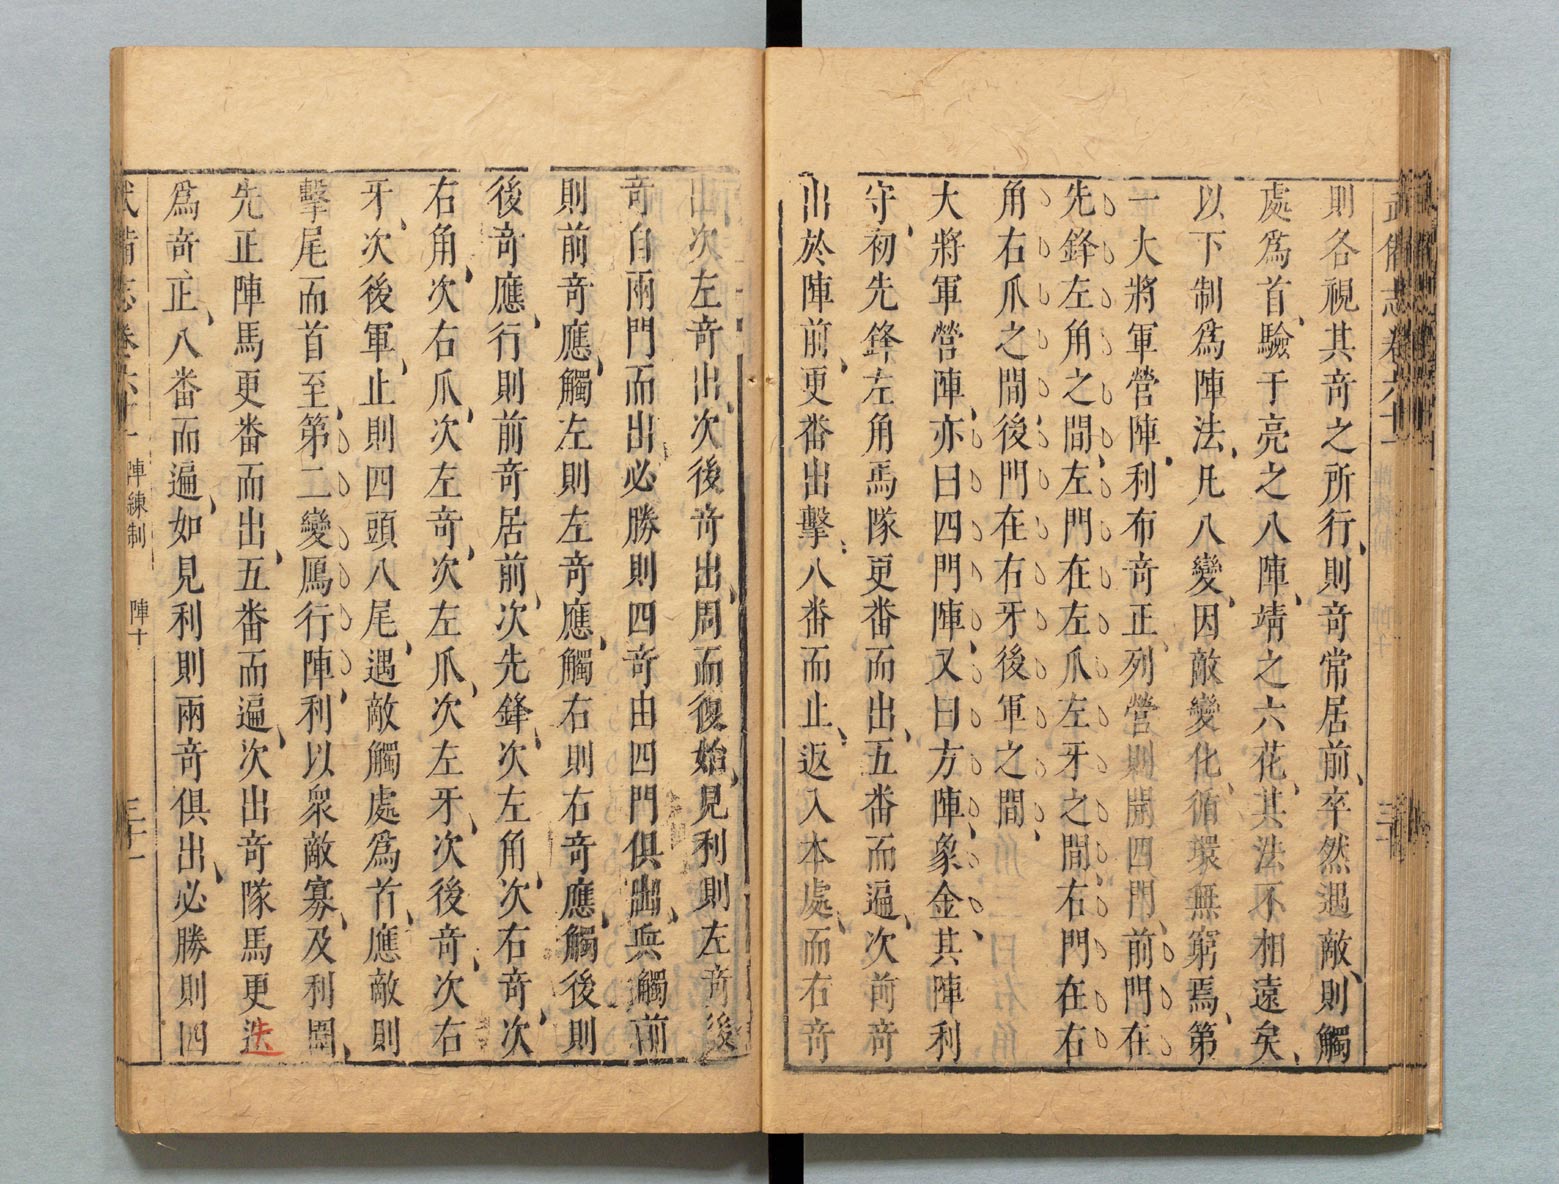 武備志卷六十一
陣練制
則各視其奇之所行則奇常居前卒然遇敵則觸
處爲首驗于亮之八陣靖之六花其法不相遠矣
以下制爲陣法凡八變因敵變化循環無窮焉第
一大將軍營陣利布奇正列營則開四門前門在
先鋒左角之間左門在左爪左牙之間右門在右
角右爪之間後門在右牙後軍之間
大將軍營陣亦曰四門陣又曰方陣象金其陣利
守初先鋒左角馬隊更畨而出五畨而遍次前奇
出於陣前更畨出擊八畨而止返入本處而右奇
出次左奇出次後奇出周而復始見利則左奇後
奇自兩門而出必勝則四奇由四門俱出兵觸前
則前奇應觸左則左奇應觸右則右奇應觸後則
後奇應行則前奇居前次先鋒次左角次右奇次
右角次右爪次左奇次左爪次左牙次後奇次右
牙次後軍止則四頭八尾遇敵觸處爲首應敵則
擊尾而首至第二變鴈行陣利以衆敵寡及利鬪
先正陣馬更畨而出五畨而遍次出奇隊馬更迭
爲奇正八畨而遍如見利則兩奇俱出必勝則四
武備志卷六十一
陣練制
陣十
三十一